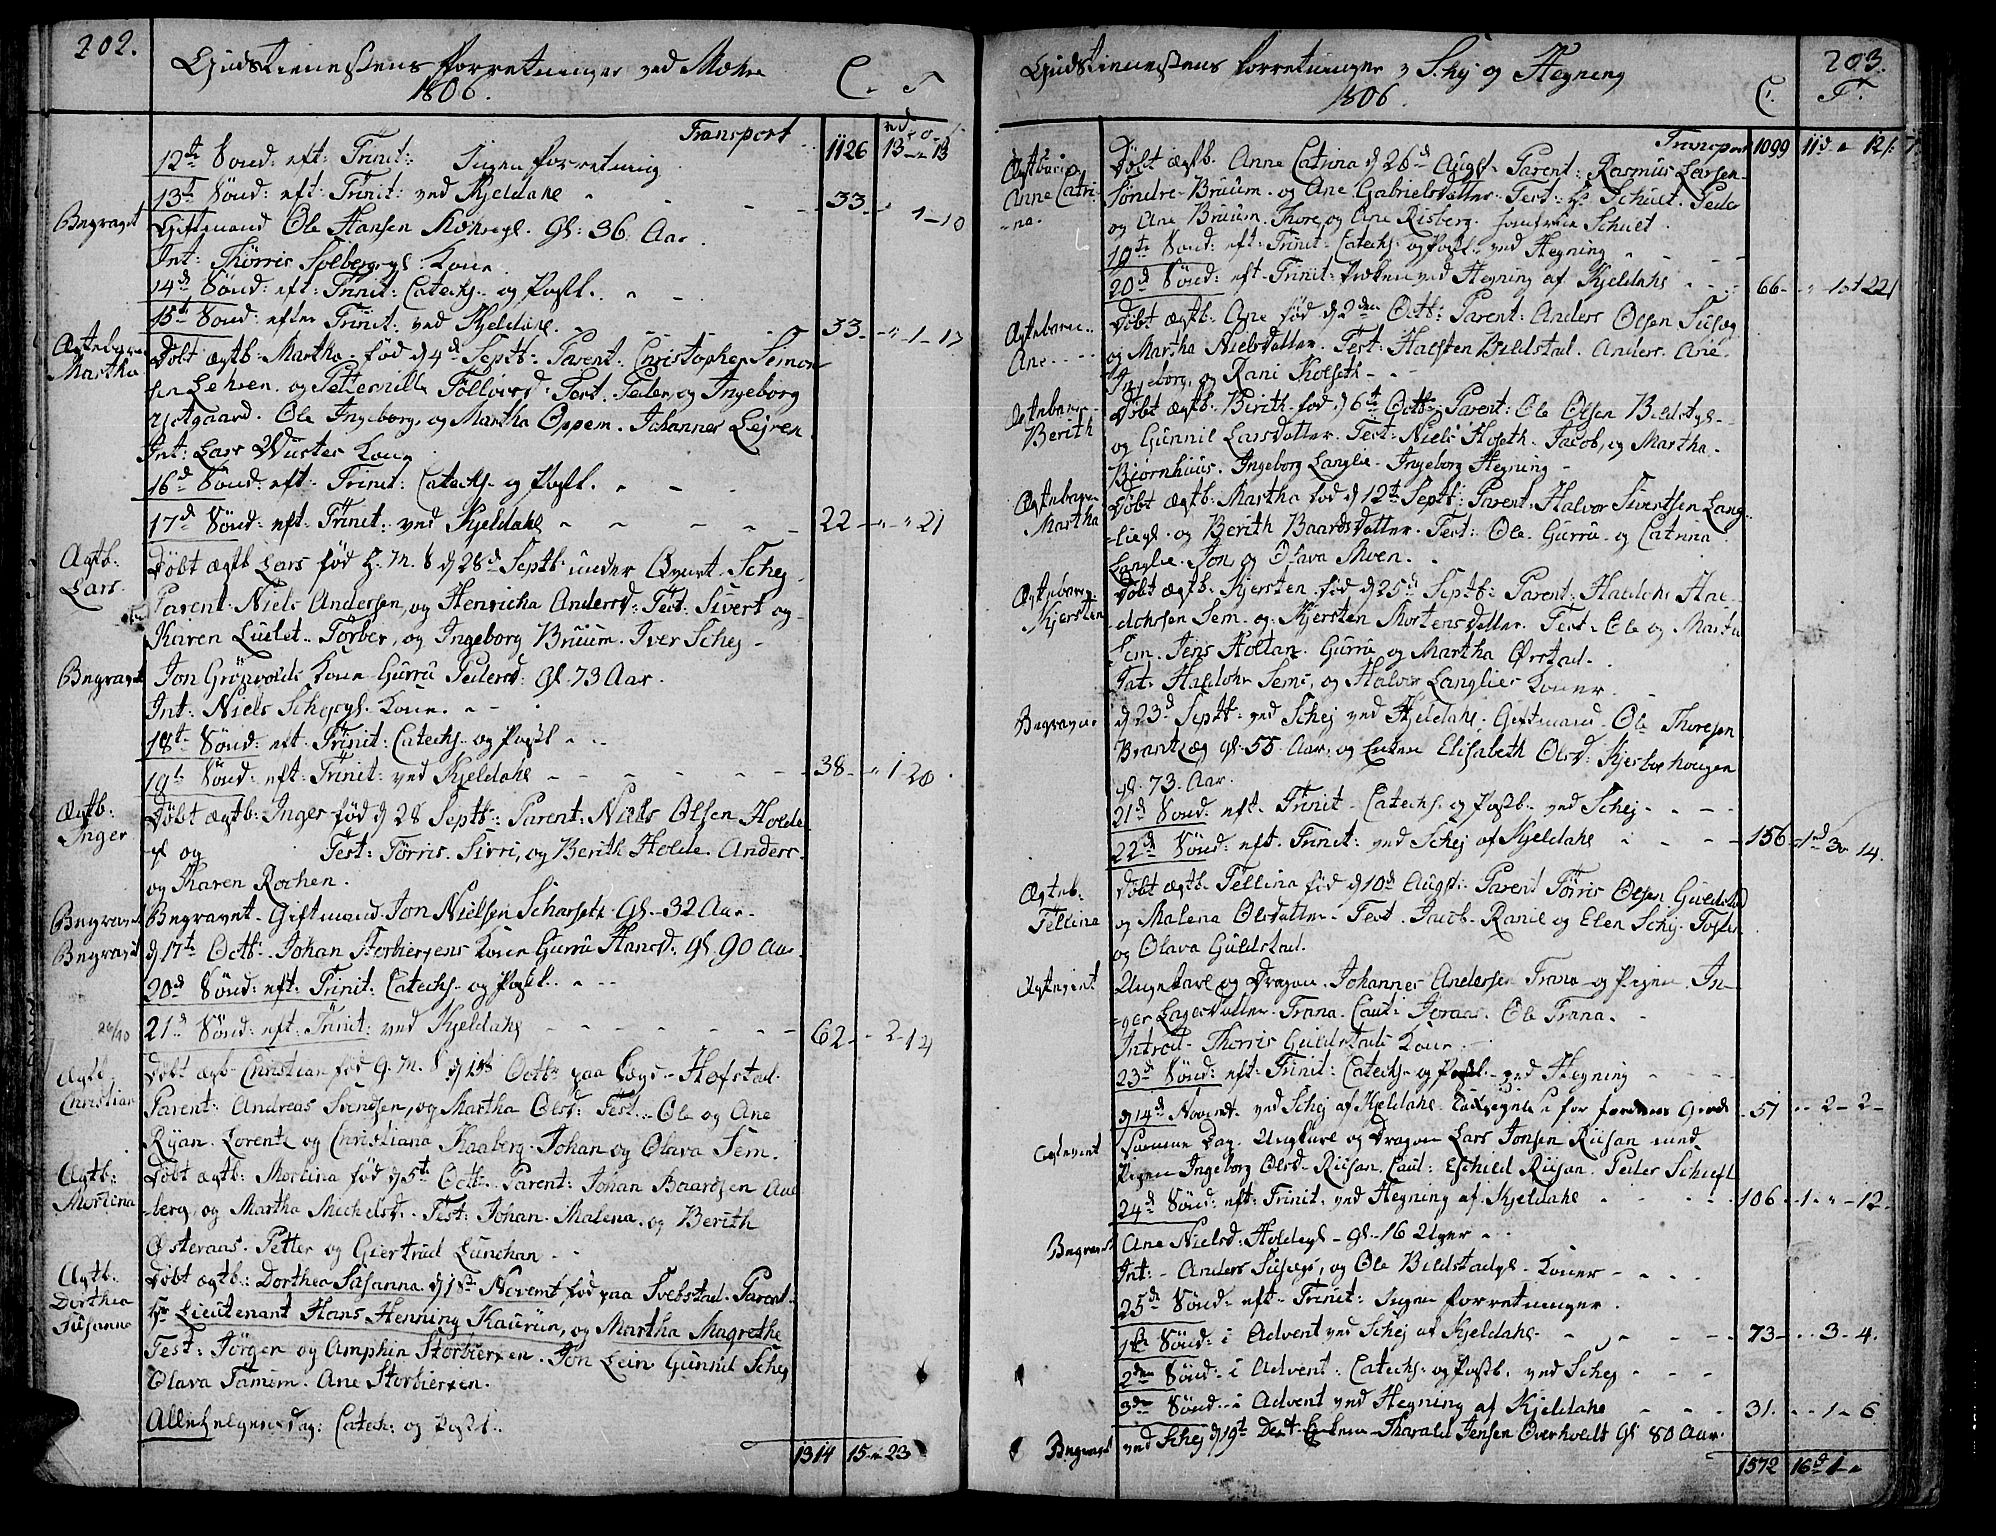 202.
Gudstienestens forretninger ved Mæhre
1806.
C. T
Transport 1126 13 - 13
12te Sönd: eft: Trinit: Ingen forretning
13te Sönd: eft: Trinit: ved Kjeldahl 33 - 1 - 10
Begravet Giftmand Ole Hansen Mæhregl. Gl: 36 Aar.
Int: Thørris Solbergsgl. Kone.
14d Sönd: eft: Trinit: Catech. og Post.
15te Sönd: efter Trinit: ved Kjeldahl. 33 - 1 - 17
Ægtebarn Martha
Døbt ægtb. Martha fød d 4d Septb: Parent: Christopher Semon
sen Lehren og Petternille Tolleivsd: Test: Peder og Ingeborg
Ole Ingeborg, og Martha Oppem. Johannes Lejren
Int: Lars Wustes Kone
16d Sönd: eft: Trinit: Catech. og Post.
17d Sönd: eft: Trinit: ved Kjeldahl 22 - 21
Ægtb. Lars.
Døbt ægtb Lars fød H. M. 8 d 28d Septb: under Qvart. Schej
Parent. Niels Andersen, og Henricha Andersd: Test: Sivert og
Karen Luelet. Torber, og Ingeborg Bruum. Iver Schej
Begravet Jon Grönvolds Kone Gurru Pedersd: Gl. 73 Aar.
Int: Niels Schejsgl. Kone.
18te Sönd: eft: Trinit: Catech. og Post
19te Sönd: eft: Trinit: ved Kjeldahl 38 - 1 - 20
Ægtb: Inger
Døbt ægtb: Inger fød d 28 Septb: Parent: Niels Olsen Holde
gl og Test: Tørris. Sirri, og Berith Holde. Anders
og Karen Rochen.
Begravet Begravet Giftmand Jon Nielsen Scharseth. Gl. 32 Aar
Begravet d 17te Octb. Johan Storbiersens Kone Gurru Hansd: Gl. 90 Aar
20d Sönd: eft: Trinit: Catech. og Post.
26/10 21d Sönd: eft: Trinit: ved Kjeldahl 62 - 2 - 14
Ægtb. Christian
Døbt ægtb. Christian fød G. M. 8 d 15d Octb. paa Hofstad.
Parent: Andreas Svendsen, og Martha Olsd: Test. Ole og Ane
Ryan. Lorentz og Christiana Kaaberg. Johan og Olava Sem.
Ægtb: Mortina
Døbt ægtb: Mortina fød d 5te Octb. Parent: Johan Baardsen Aal
berg, og Martha Michelsd. Test: Johan. Malena. og Berith
Østeraas. Petter og Giertrud Lunchan
Ægtb. Dorthea Susanna
Døbt ægtb: Dorthea Susanna, d 1ste Novemb fød paa Svebstad. Parent.
Hr Lieutenant Hans Henning Kaurin, og Martha Magrethe
Test: Jörgen og Amphin Storbiersen. Jon Lein Gunnil Schej
Olava Tamem. Ane Storbiersen.
Allehelgensdag: Catech: og Post.
1314 15 - 23
203.
Gudstienestens forretninger i Schej og Hegning
1806.
C. T.
Transport 1099 11d - 12
Ægtbarn Anne Catrina.
Døbt ægtb. Anne Catrina d 26d Augst. Parent: Rasmus Larsen
Söndre-Bruum. og Ane Gabrielsdatter. Test: Hr Schult. Peder
og Ane Bruum. Thore, og Ane Risberg. Jomfrue Schult.
19te Sönd: eft: Trinit: Catech. og Post. ved Hegning
20d Sönd: eft. Trinit: ved Hegning af Kjeldahl 66 - 1 - 22
Ægtebarn Ane
Døbt ægtb. Ane fød d 2den Octb: Parent: Anders Olsen Susæg
og Martha Nielsdatter. Test: Halsten Bildstad. Anders. Ane
Ingeborg, og Rani Tholseth
Ægtebarn Berith
Døbt ægtb. Berith fød d 6te Octb: Parent: Ole Olsen Bildstgl.
og Gunnil Larsdatter. Test: Niels Hoseth. Jacob, og Martha
Bjørnhuus. Ingeborg Langlie. Ingeborg Hegning
Ægtebarn Martha
Døbt ægtb: Martha fød d 12te Septb: Parent: Halvor Sivertsen Lang
liegl. og Berith Baardsdatter. Test: Ole. Gurru. og Catrina
Langlie. Jon, og Olava Moen.
Ægtebarn Kjersten
Døbt ægtb. Kjersten fød d 25d Septb: Parent: Haldohr Hal
dohrsen Sem. og Kjersten Mortensdatter. Test. Ole og Martha
Sem. Jens Holtan. Gurru og Martha Ørstad.
Int: Haldohr Sems, og Halvor Langlies Koner.
Begravne d 23d Septb: ved Schej ved Kjeldahl. Giftmand Ole Thoresen
Brantzæg gl. 55 Aar, og Enken Elisabeth Olsd: Kjerbochougen
gl. 73. Aar.
21d Sönd: eft: Trinit. Catech. og Postb. ved Schej
22d Sönd: eft. Trinit: ved Schej af Kjeldahl 156 - 1d 3 - 14.
Ægteb. Tellina
Døbt ægtb. Tellina fød d 10d Augst: Parent Törris Olsen Guldstad
og Malena Olsdatter. Test. Jacob. Ranie og Elen Schej. Tosten
og Olava Guldstad.
Ægteviet Ungekarl og Dragon. Johannes Andersen Trana og Pigen In
ger Lagesdatter Trana. Caut: Ole Trana.
Introd. Thorris Guldstads Kone.
23d Sönd: eft: Trinit: Catech. og Post. ved Hegning
d 14d Novemb. ved Schej af Kjeldahl. 51 - 2 - 2
Ægteviet Samme Dag. Ungkarl og Dragon Lars Jonsen Riisan med
Pigen Ingeborg Olsd. Riisan. Caut: Eschild Riisan. Peder Schult
24d Sönd: eft: Trinit. ved Hegning af Kjeldahl 106 - 1 - 12
Begravet Ane Nielsd: Holdegl. gl. 16 Uger
Int. Anders Susegs, og Ole Bildstadgl. Koner
25d Sönd: eft. Trinit: Ingen forretninger.
1ste Sönd: i Advent ved Schej af Kjeldahl 73 - 3 - 4.
2den Sönd. i Advent: Catech. og Postb. ved Schej
3die Sönd. i Advent ved Hegning af Kjeldahl 31. - 1 - 6
Begravet ved Schej d 19te Decb. Harald Jensen Overholdt Gl 80 Aar.
1572 16d 1